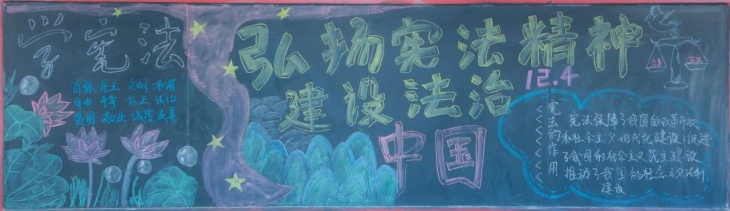 学宪法
富强 民主 文明 和谐
自由 平等 公正 法治
爱国 敬业 诚信 友善
弘扬宪法精神
12.4
建设法治
中国
宪法的作用
宪法保障了我国的改革开放
和社会主义现代化建设,促进
了我国的社会主义民主建设
推动了我国的社会主义法制
建设